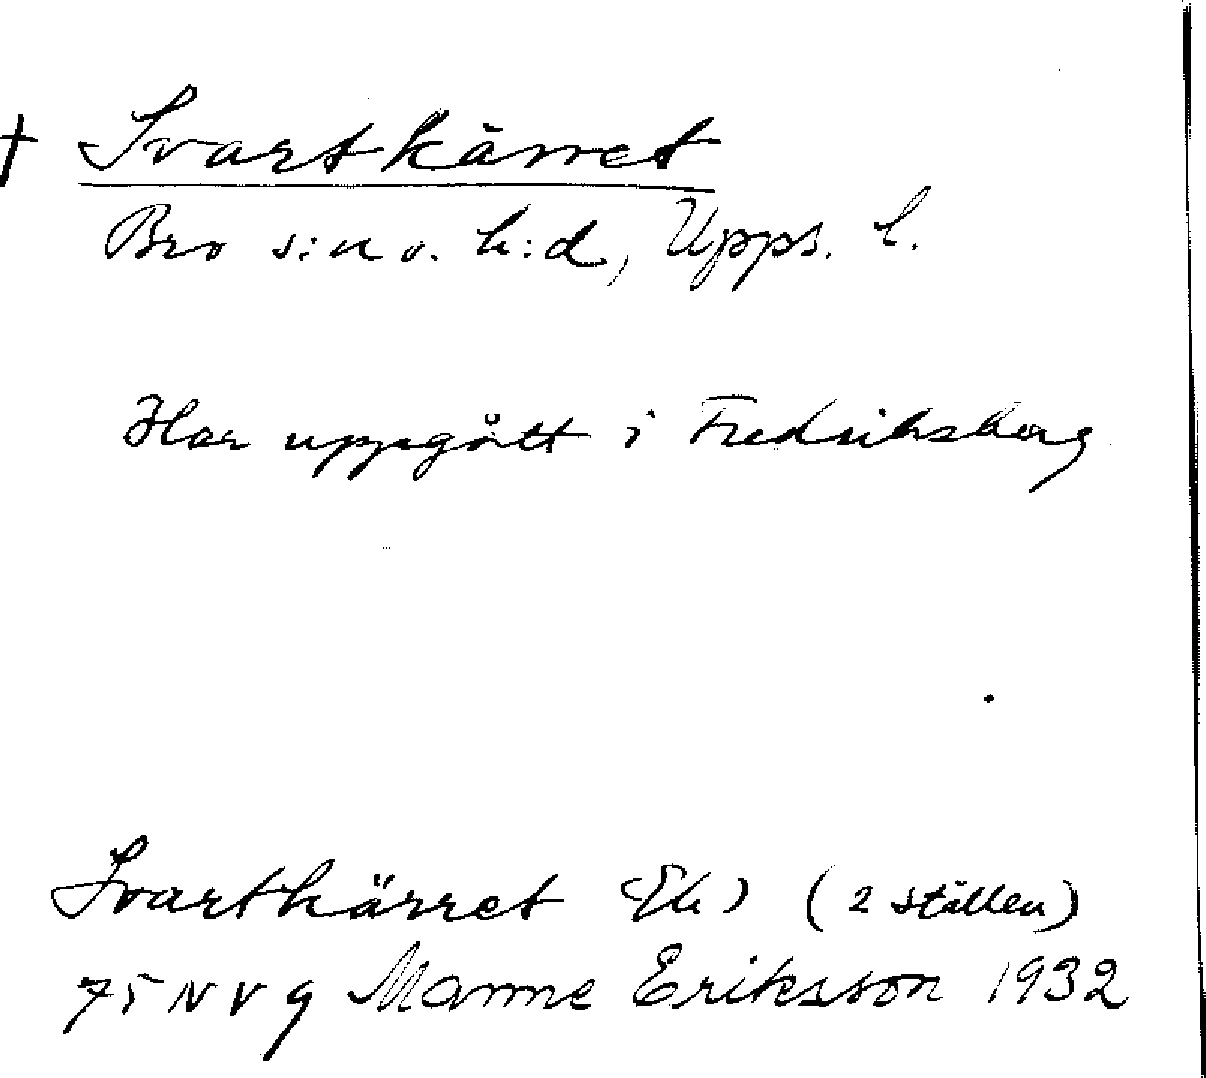 † Svartkärret
Bro s:n o. h:d, Upps. l.
Har uppgått i Fredriksberg
Svartkärret (Ek) (2 ställen)
75 NV g Manne Eriksson 1932